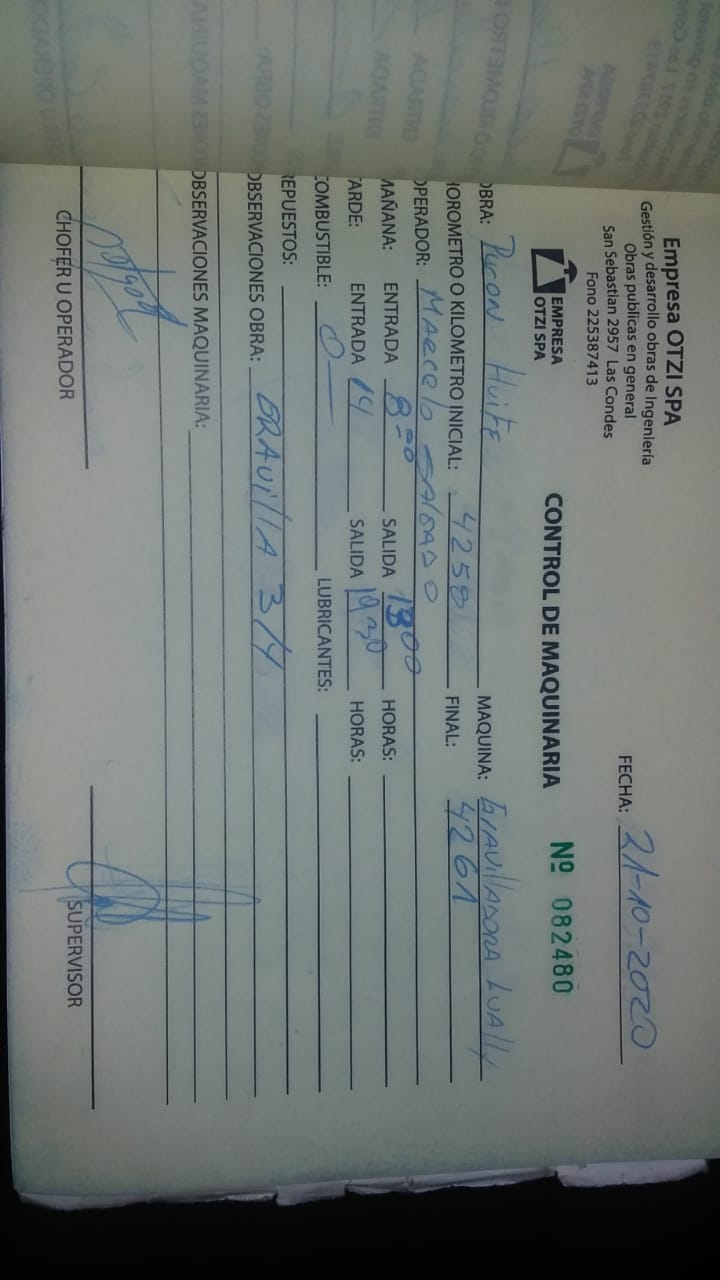 Empresa OTZI SPA
Gestión y desarrollo obras de Ingeniería
Obras publicas en general
San Sebastian 2957 Las Condes
Fono 225387413
FECHA: 21-10-2020
EMPRESA
OTZI SPA
CONTROL DE MAQUINARIA Nº 082480
OBRA: Pucon Huife MAQUINA: GravillaDORA
HOROMETRO O KILOMETRO INICIAL: 4258 FINAL: 4261
OPERADOR: MARCELO SALGADO
MAÑANA: ENTRADA 8=00 SALIDA 1300 HORAS:
TARDE: ENTRADA 14 SALIDA 19 30 HORAS:
COMBUSTIBLE: 0— LUBRICANTES:
REPUESTOS:
OBSERVACIONES OBRA: GRAVillA 3/4
OBSERVACIONES MAQUINARIA:
CHOFER U OPERADOR SUPERVISOR